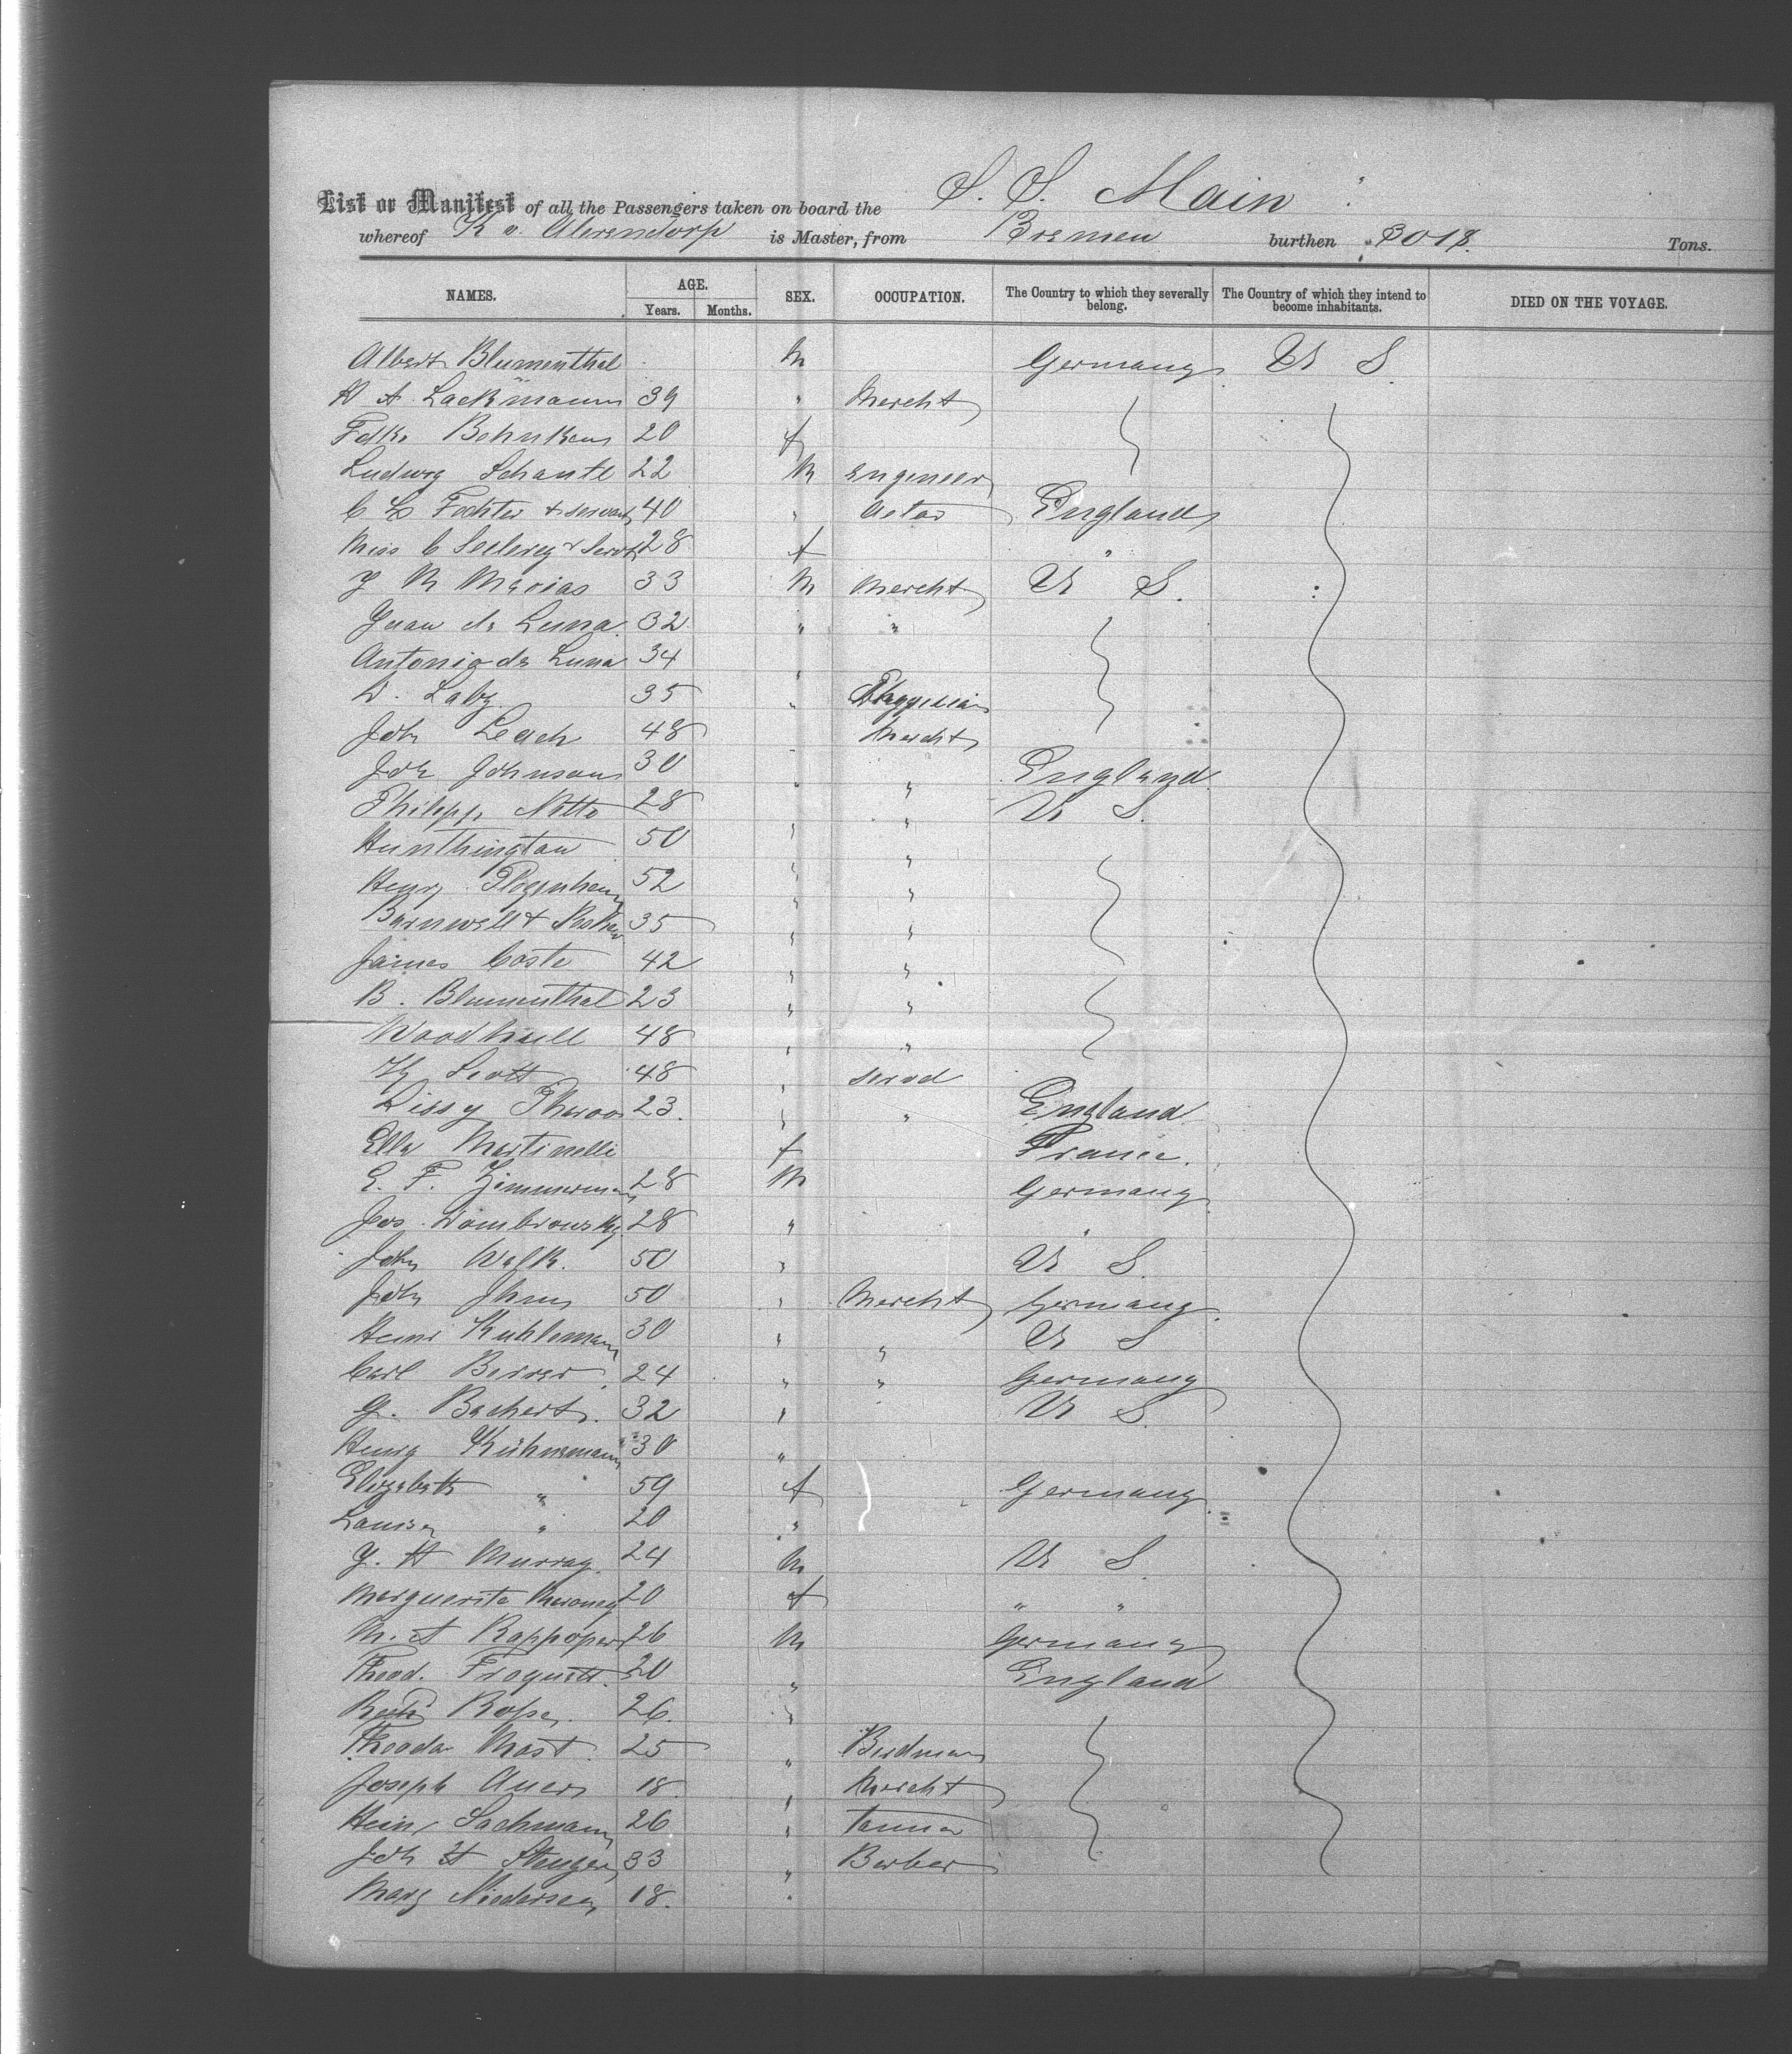 List or Manifest of all the Passengers taken on board the S. S. Main
whereof K v. Oterendorp is Master, from Bremen burthen 3018. Tons.
NAMES. AGE. Years. Months. SEX. OCCUPATION. The Country to which they severally belong. The Country of which they intend to become inhabitants. DIED ON THE VOYAGE.
Albert Blumenthal M Germany U S
H A Lackmann 39 " Mercht
Folke Behnken 20 f
Ludwig Schantl 22 M Engineer
C Fechter & servant 40 " Actor England
Miss C Leclercq & Servt 28 f "
J M Macias 33 M Mercht U S.
Juan de Luna 32 " "
Antonio de Luna 34 "
D. Laby 35 "
Joh Leach 48 " Mercht
Joh Johnson 30 " " England
Philipp Netto 28 " " U S.
Hunthington 50 " "
Henry 52 " "
Barnwell & 35 " "
James Coste 42 " "
B. Blumenthal 23 " "
Woodhull 48 " "
Hy Scott 48 " Servd
Dissy 23. " " England
Ella Martinelli f France.
E. F. Zimmerman 28 M Germany
Jos. Dombrowsky 28 " "
John Walk. 50 " U S.
John Ihrus 50 " Mercht Germany
Henri Kuhleman 30 " " U S
Carl Berrer 24 " " Germany
G. Bachert. 32 " U S.
Henry Kühnemann 30 "
Elizabeth " 59 f Germany
Louise " 20 "
J. H Murray. 24 M U S.
Marguerite Maroney 20 f " "
M. A Rappoport 26 M Germany
Theod. 20 " England
Rose 26. "
Theodor Mast. 25 " Birdman
Joseph Auer 18 " Mercht
Hein Lachmann 26 " Tanner
Joh H Stenger 33 " Barber
Mary Niedersen 18. "